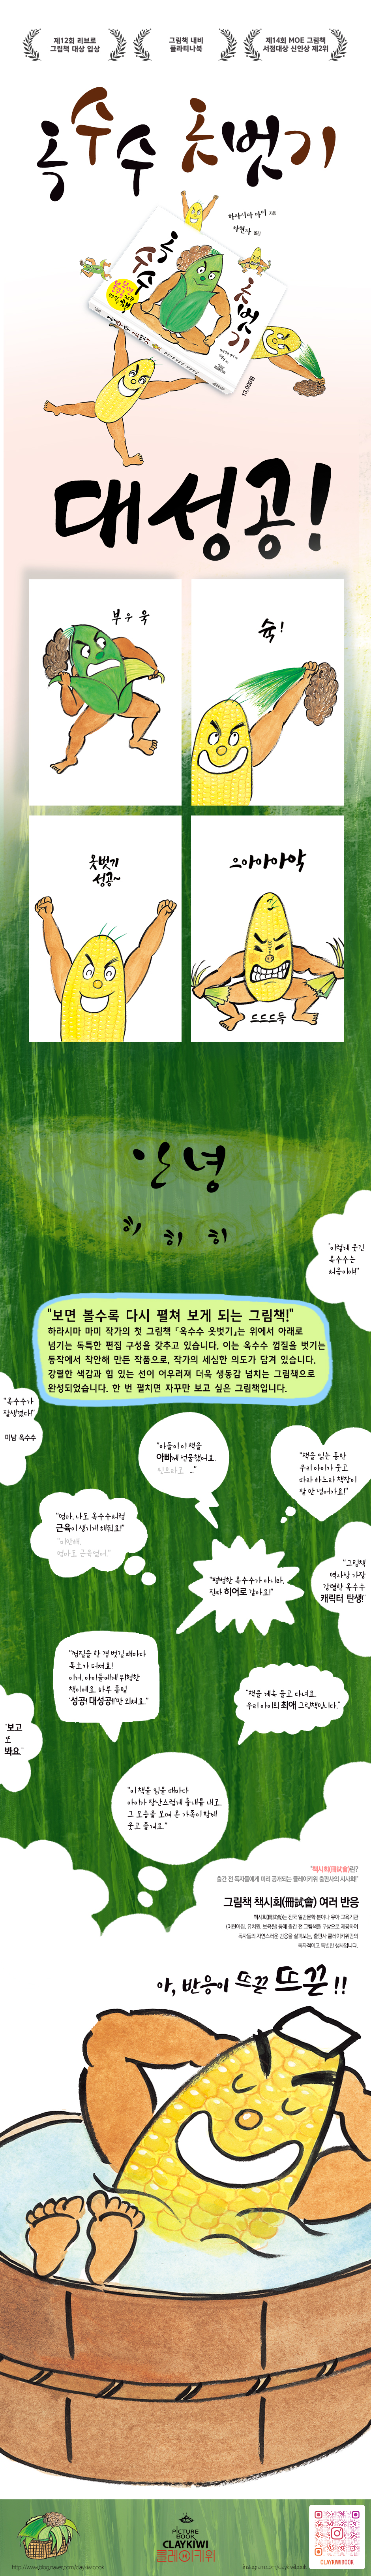 제12회 리브로
그림책 대상 입상
그림책 내비
플라티나북
제14회 MOE 그림책
서점대상 신인상 제2위
옥수수 옷벗기
하라시마 마미 지음
옥수수
옷벗기
13,000원
대성공!
부우욱
슉!
옷벗기
성공~
으아아아악
드드드득
안녕
히 히 히
"이렇게 웃긴
옥수수는
처음이야!"
"보면 볼수록 다시 펼쳐 보게 되는 그림책!"
하라시마 마미 작가의 첫 그림책 『옥수수 옷벗기』는 위에서 아래로
넘기는 독특한 편집 구성을 갖추고 있습니다. 이는 옥수수 껍질을 벗기는
동작에서 착안해 만든 작품으로, 작가의 세심한 의도가 담겨 있습니다.
강렬한 색감과 힘 있는 선이 어우러져 더욱 생동감 넘치는 그림책으로
완성되었습니다. 한 번 펼치면 자꾸만 보고 싶은 그림책입니다.
"옥수수가
잘생겼다!"
미남 옥수수
"아들이 이 책을
아빠께 선물했어요.
"책을 읽는 동안
우리 아이가 웃고
따라 하느라 책장이
잘 안 넘어가요!"
"엄마, 나도 옥수수처럼
근육이 생기게 해줘요!"
엄마도 근육 없어."
"평범한 옥수수가 아니라,
진짜 히어로 같아요!"
"그림책
역사상 가장
강렬한 옥수수
캐릭터 탄생!"
"껍질을 한 겹 벗길 때마다
폭소가 터져요!
이거, 아이들에게 위험한
책이에요. 하루 종일
'성공! 대성공!'만 외쳐요."
"책을 계속 들고 다녀요.
우리 아이의 최애 그림책입니다."
"보고
또
봐요."
"이 책을 읽을 때마다
아이가 장난스럽게 흉내를 내고,
그 모습을 보며 온 가족이 함께
웃고 즐겨요."
"책시회(冊試會)란?
출간 전 독자들에게 미리 공개되는 클레이키위 출판사의 시사회"
그림책 책시회(冊試會) 여러 반응
책시회(冊試會)는 전국 일반문학 분야나 유아 교육기관
(어린이집, 유치원, 보육원) 등에 출간 전 그림책을 무상으로 제공하여
독자들의 자연스러운 반응을 살펴보는, 출판사 클레이키위만의
독자적이고 특별한 행사입니다.
아, 반응이 뜨끈 뜨끈!!
PICTURE
BOOK
CLAYKIWI
클레키위
http://www.blog.naver.com/claykiwibook
instagram.com/claykiwibook
CLAYKIWIBOOK